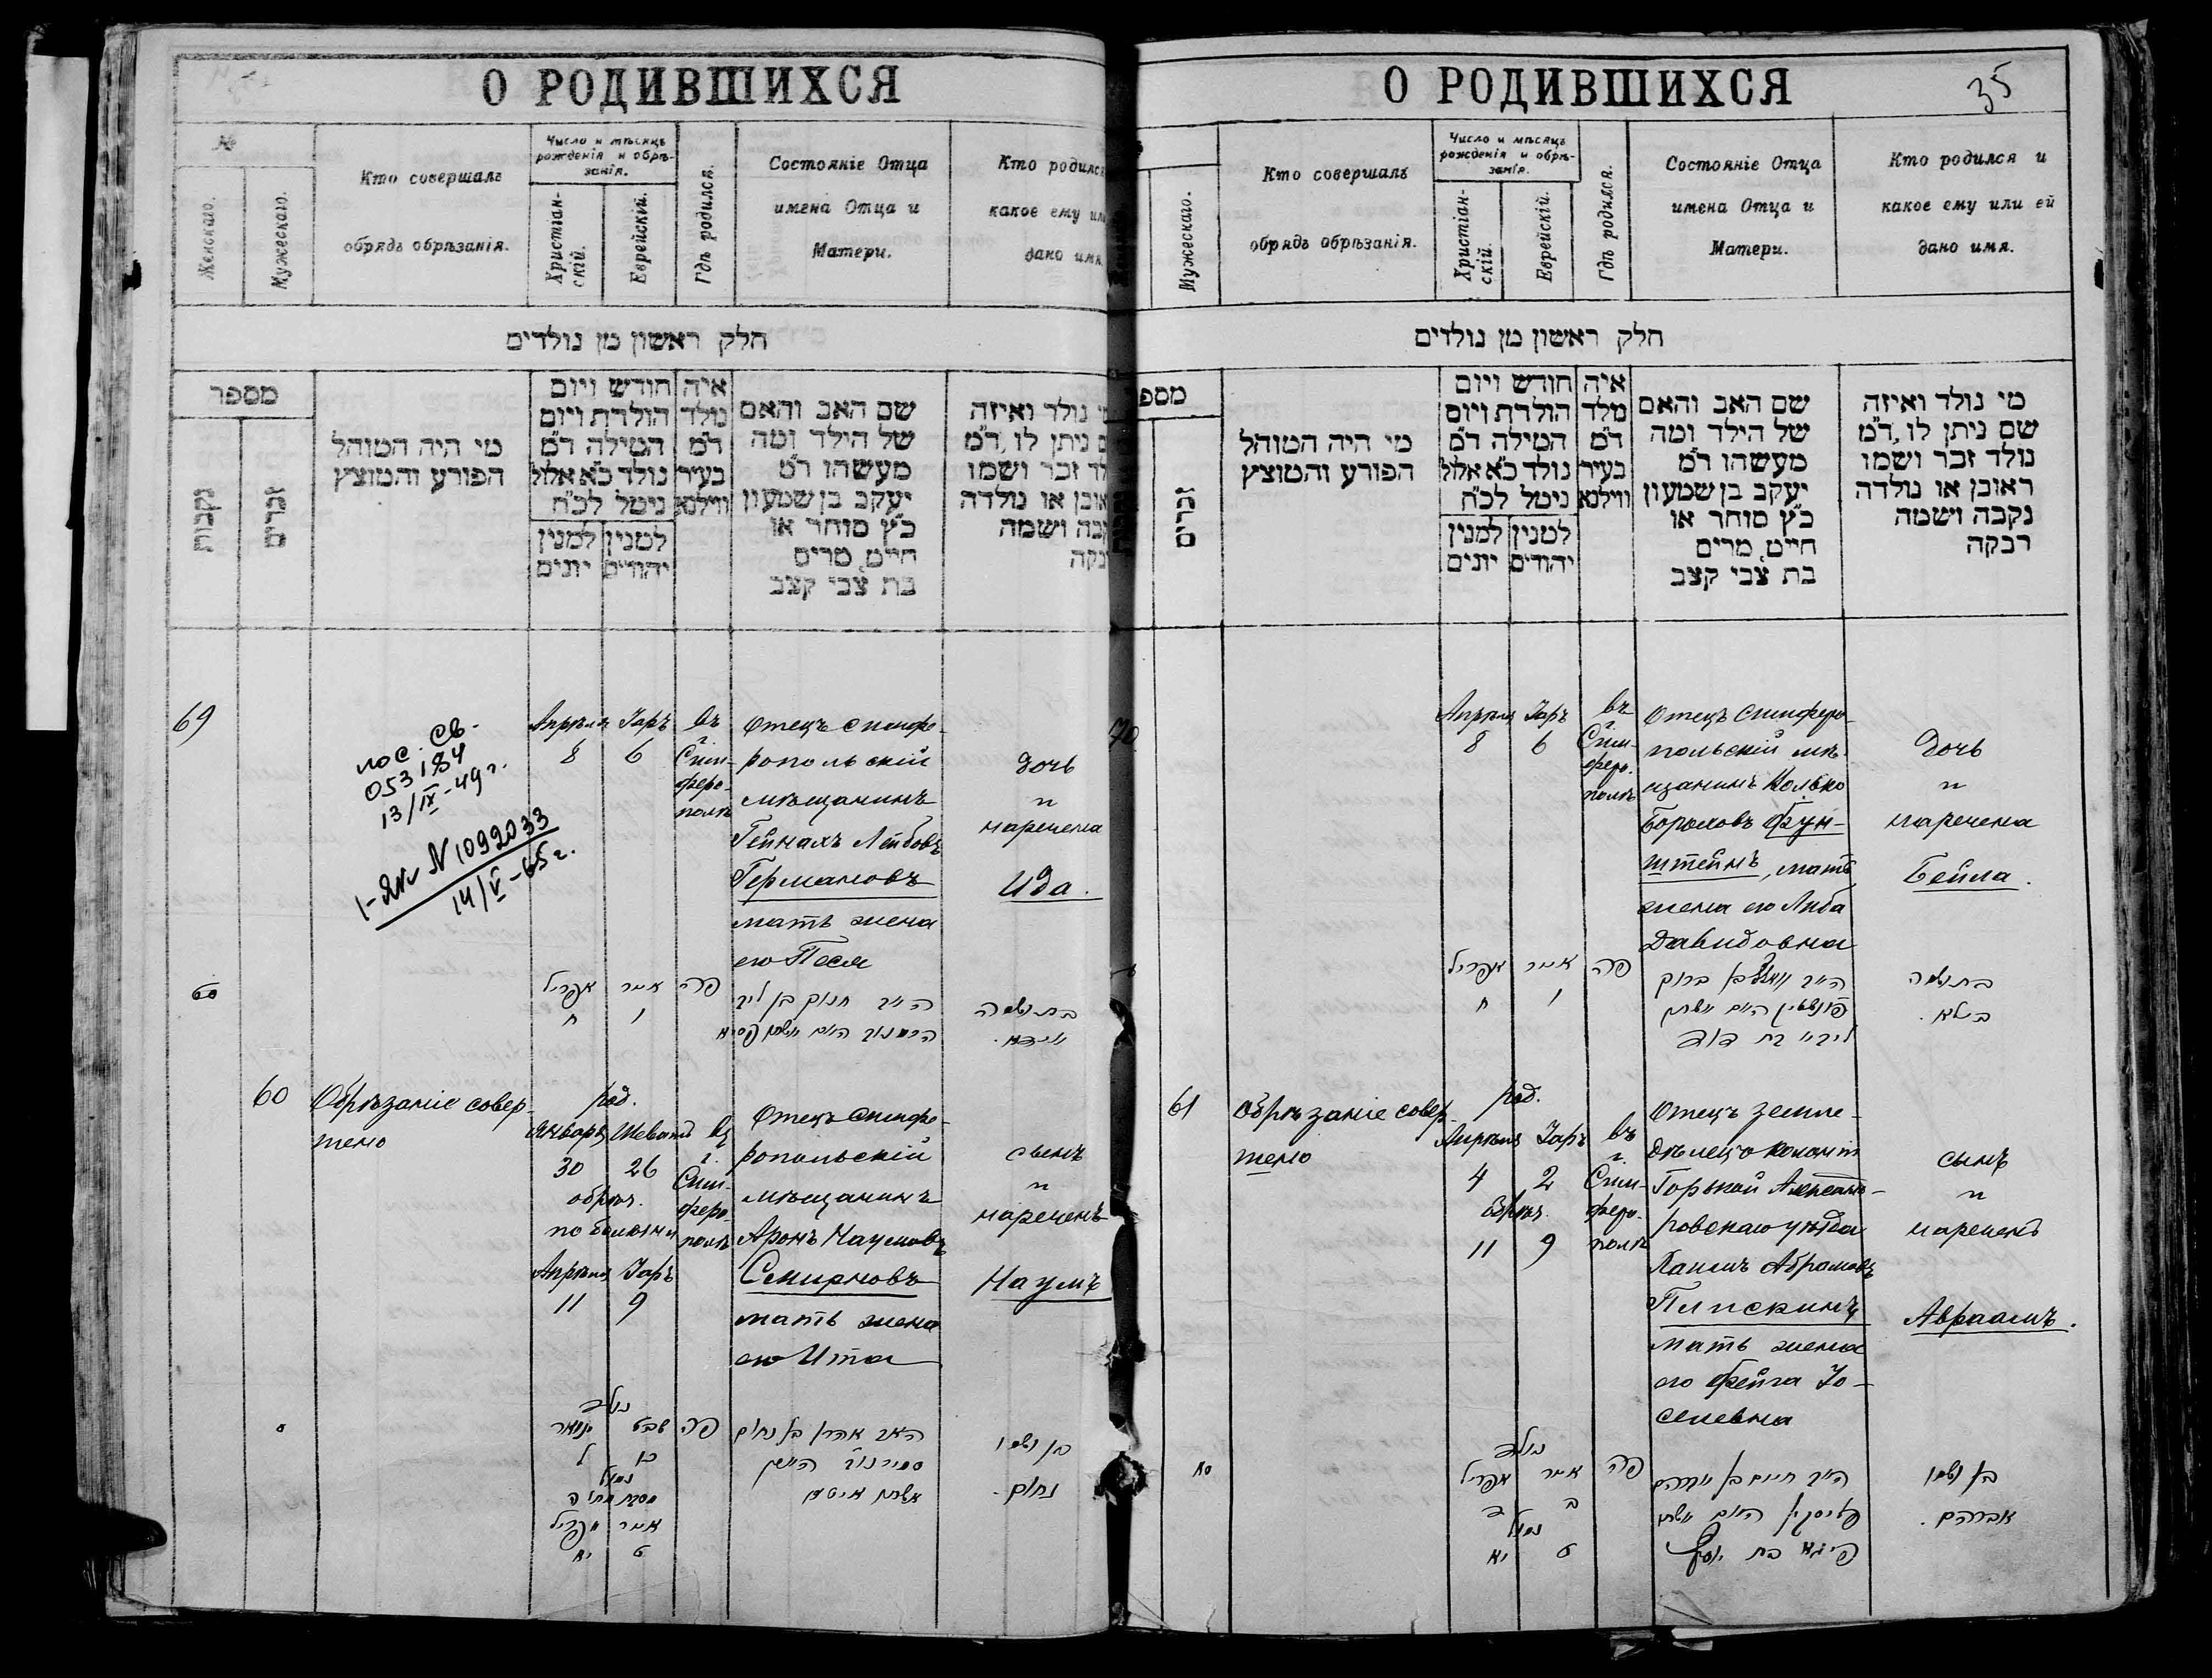 О РОДИВШИХСЯ
№
Женскаго.
Мужескаго.
Кто совершалъ
обрядъ обрѣзанія.
Число и мѣсяцъ
рожденія и обрѣ-
занія.
Христіан-
скій.
Еврейскій.
Гдѣ родился.
Состояніе Отца
имена Отца и
Матери.
Кто родился
какое ему или
дано имя.
חלק ראשון מן נולדים
מספר
נקבות
זכרים
מי היה המוהל
הפורע והמוצץ
חודש ויום
הולדת ויום
המילה ד"מ
נולד כ"א אלול
נימל לכ"ח
למנין יהודים
למנין יונים
איה
נולד
ד"מ
בעיר
ווילנא
שם האב והאם
של הילד ומה
מעשהו ד"מ
יעקב בן שמעון
כ"ץ סוחר או
חייט, מרים
בת צבי קצב
נולד ואיזה
ניתן לו, ד"מ
זכר ושמו
או נולדה
ושמה
69
пос. св.
053184
13/IX-49г.
№1092033
14/V-65г.
Апрѣля Іаръ
8 6
въ
г.
Сим-
феро-
полѣ
Отецъ симфе-
ропольскій
мѣщанинъ
Гейнахъ Лейбовъ
Германовъ
мать жена
его Песя
дочь
и
наречена
Ида.
אפריל אייר פה
ח ו
האב חנוך בן ליב
60
Обрѣзаніе совер-
шено
род.
Января Шеватъ
30 26
обрѣз.
по болѣзни
Апрѣля Іаръ
11 9
въ
г.
Сим-
феро-
полѣ
Отецъ симфе-
ропольскій
мѣщанинъ
Аронъ Наумовъ
Смирновъ
мать жена
его Ита
сынъ
и
нареченъ
Наумъ
נולד
שבט ינואר פה
כו ל
נמול
אייר אפריל
ט יא
האב אהרן בן נחום
נחום.
О РОДИВШИХСЯ
35
Мужескаго.
Кто совершалъ
обрядъ обрѣзанія.
Число и мѣсяцъ
рожденія и обрѣ-
занія.
Христіан-
скій.
Еврейскій.
Гдѣ родился.
Состояніе Отца
имена Отца и
Матери.
Кто родился и
какое ему или ей
дано имя.
חלק ראשון מן נולדים
זכרים
מי היה המוהל
הפורע והמוצץ
חודש ויום
הולדת ויום
המילה ד"מ
נולד כ"א אלול
נימל לכ"ח
למנין יהודים
למנין יונים
איה
נולד
ד"מ
בעיר
ווילנא
שם האב והאם
של הילד ומה
מעשהו ד"מ
יעקב בן שמעון
כ"ץ סוחר או
חייט, מרים
בת צבי קצב
מי נולד ואיזה
שם ניתן לו, ד"מ
נולד זכר ושמו
ראובן או נולדה
נקבה ושמה
רבקה
70
Апрѣля Іаръ
8 6
въ
г.
Сим-
феро-
полѣ
Отецъ симферо-
польскій мѣ-
щанинъ
Боруховъ Фун-
штейнъ, мать
жена его Либа
Давидовна
дочь
и
наречена
Бейла.
אפריל אייר פה
ח ו
בת ושמה
ביילא.
61
Обрѣзаніе совер-
шено
род.
Апрѣля Іаръ
4 2
Обрѣз.
11 9
въ
г.
Сим-
феро-
полѣ
Отецъ земле-
дѣлецъ
Горькой
ровскаго уѣзда
Абрамовъ
мать жена
его Фейга Іо-
селевна
сынъ
и
нареченъ
Авраамъ.
נולד
אייר אפריל פה
ב ד
נמול
ט יא
האב חיים בן אברהם
פייגא בת יוסף
בן ושמו
אברהם.